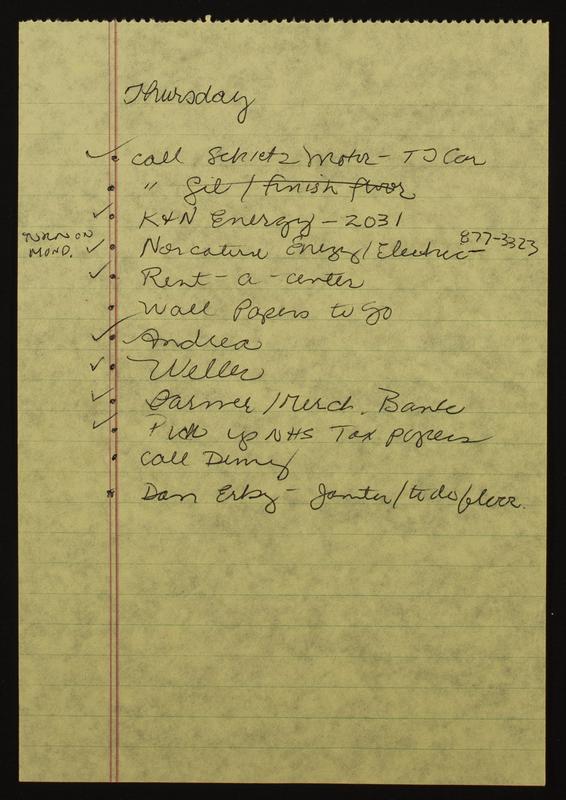 Thursday
✓ • call Schietz Motor - TJ Car
• " Gil / finish floor
✓ • K&N Energy - 2031
TURN ON MOND. ✓ • Norcature Energy/Electric - 877-3323
✓ • Rent-a-center
• Wall Papers to go
✓ • Andrea
✓ • Weller
✓ • Farmer/Merch. Bank
✓ • Pick up NHS Tax papers
• call Denny
• Dan Erby - Janitor/to do floor.